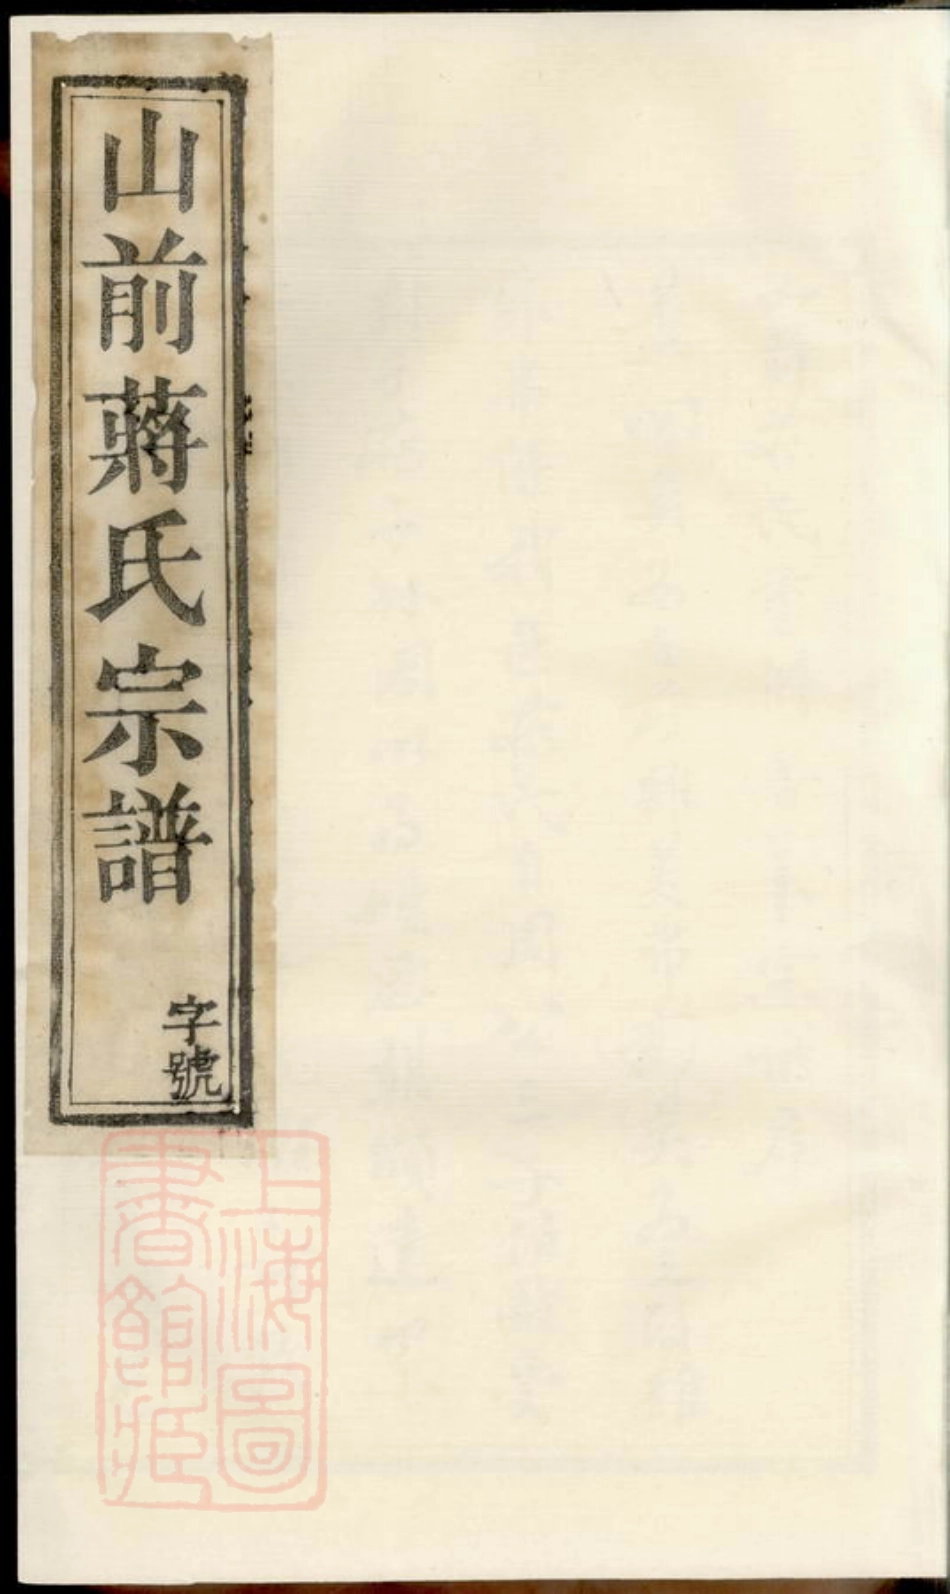 山前蔣氏宗譜
字號
上海圖
書館藏